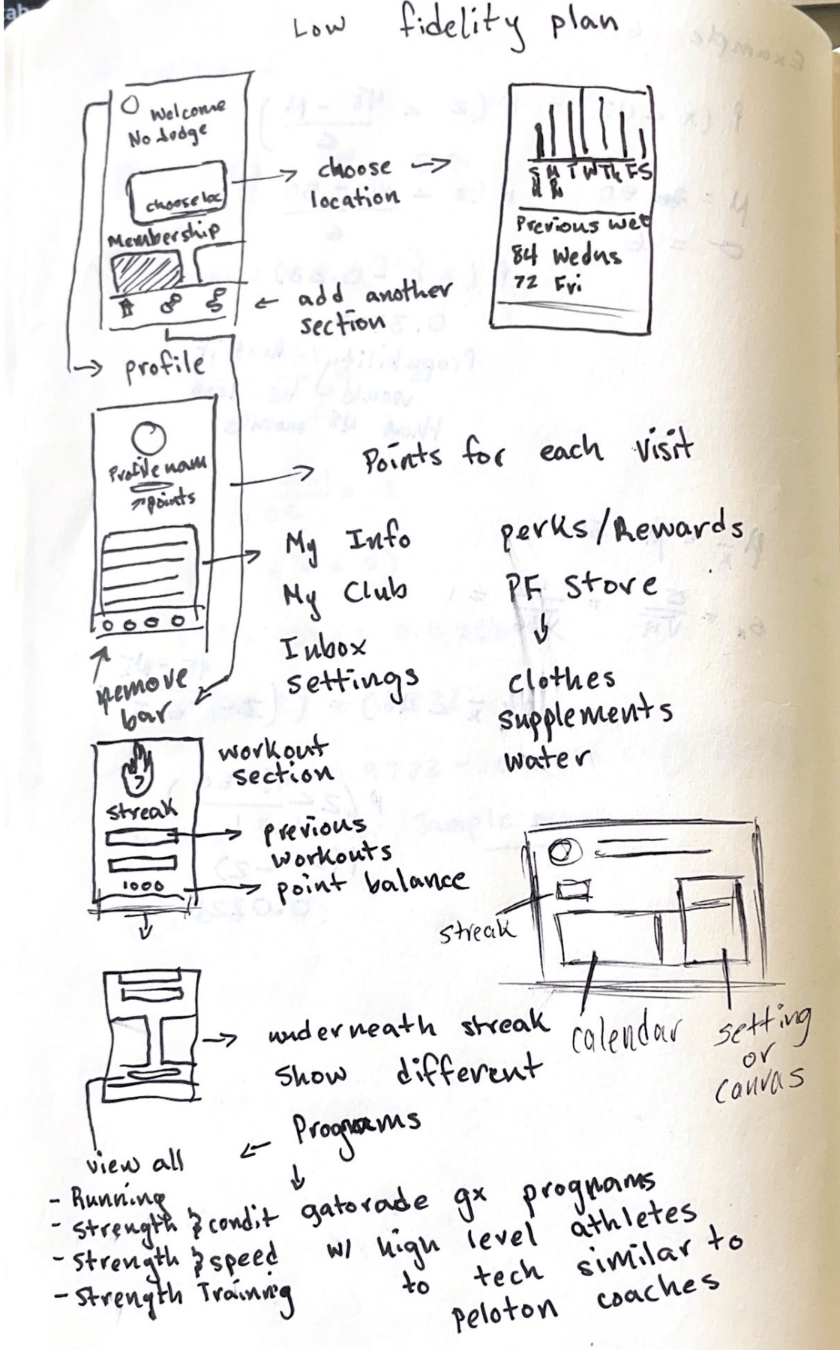 Low fidelity plan
Welcome
No Judge
choose loc
Membership
choose
location
add another
section
S M T W Th F S
Previous Wet
84 Wedns
72 Fri
profile
Profile nam
points
Points for each visit
My Info
My Club
Inbox
settings
perks/Rewards
PF Store
clothes
supplements
water
remove
bar
workout
section
streak
previous
workouts
point balance
1000
streak
calendar
setting
or
canvas
underneath streak
show different
Programs
view all
- Running
- strength & condit
- strength & speed
- strength Training
gatorade gx programs
w/ high level athletes
to tech similar to
peloton coaches